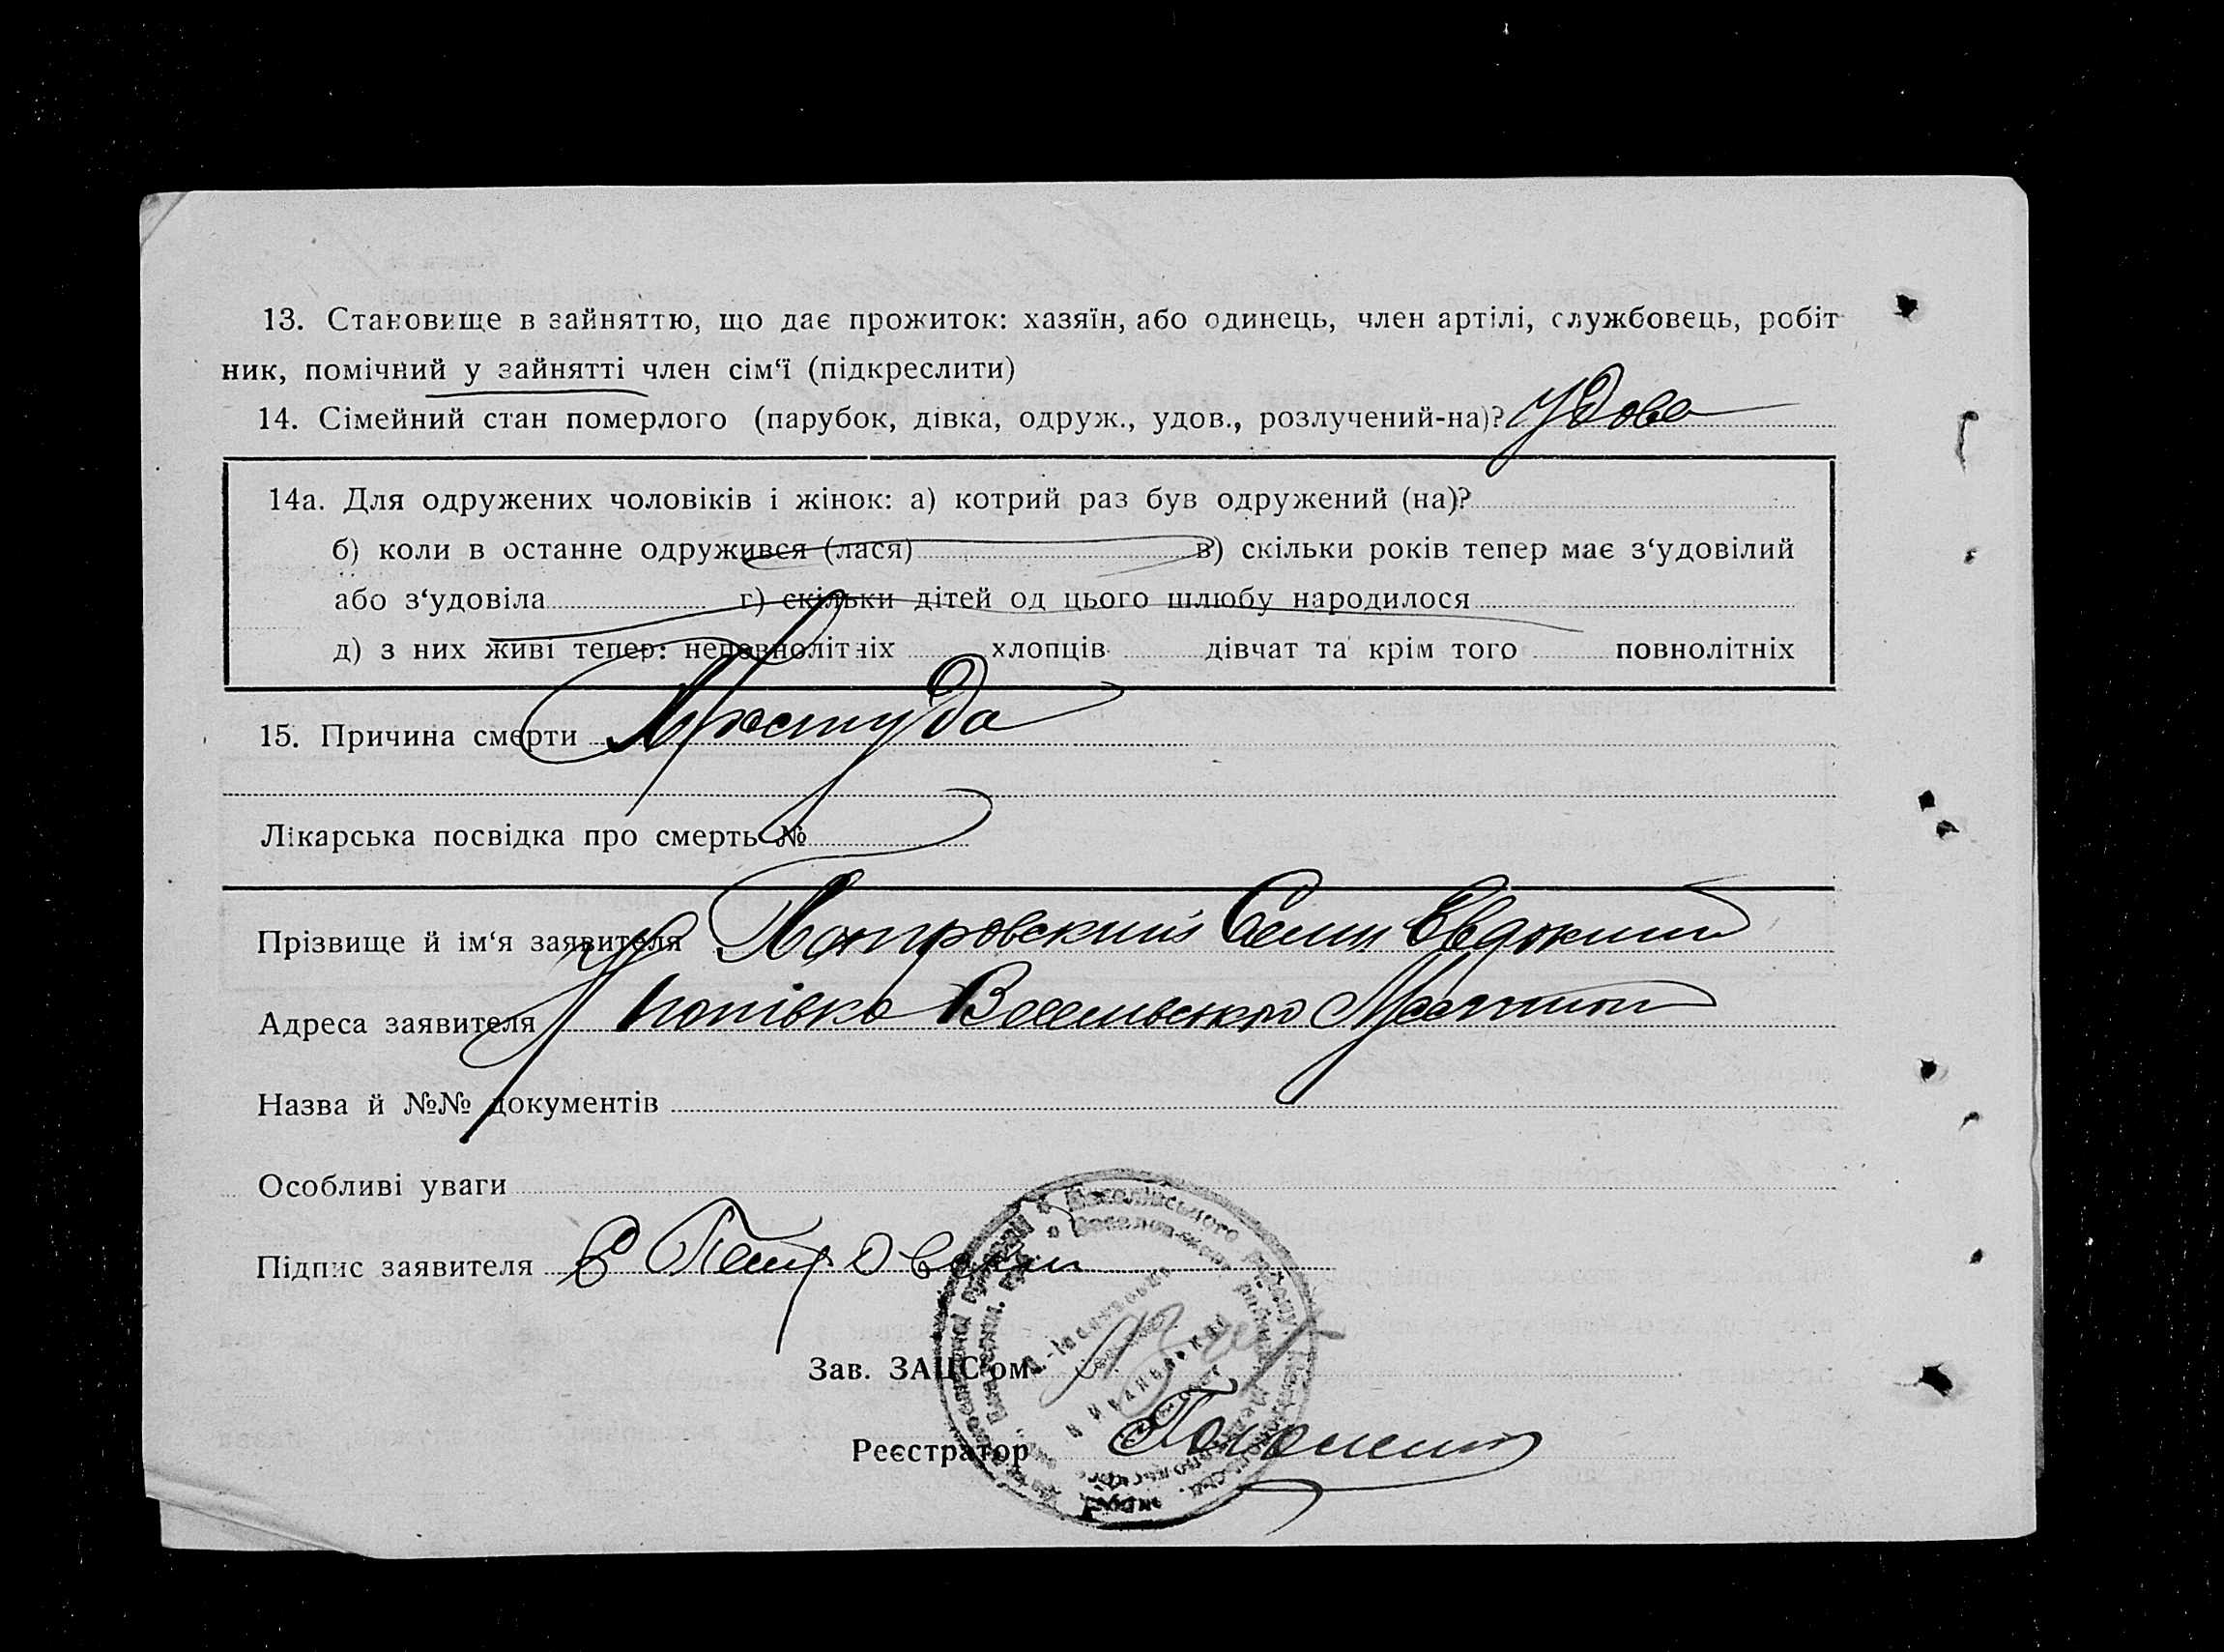 13. Становище в зайняттю, що дає прожиток: хазяїн, або одинець, член артілі, службовець, робіт
ник, помічний у зайнятті член сім‘ї (підкреслити)
14. Сімейний стан померлого (парубок, дівка, одруж., удов., розлучений-на)? Удова
14а. Для одружених чоловіків і жінок: а) котрий раз був одружений (на)?
б) коли в останне одружився (лася) в) скільки років тепер має з‘удовілий
або з‘удовіла г) скільки дітей од цього шлюбу народилося
д) з них живі тепер: неповнолітніх хлопців дівчат та крім того повнолітніх
15. Причина смерти Простуда
Лікарська посвідка про смерть №
Прізвище й ім‘я заявителя Петровский Семен Евдоким
Адреса заявителя
Назва й №№ документів
Особливі уваги
Підпис заявителя С Петровский
Зав. ЗАЦС‘ом
Реєстратор